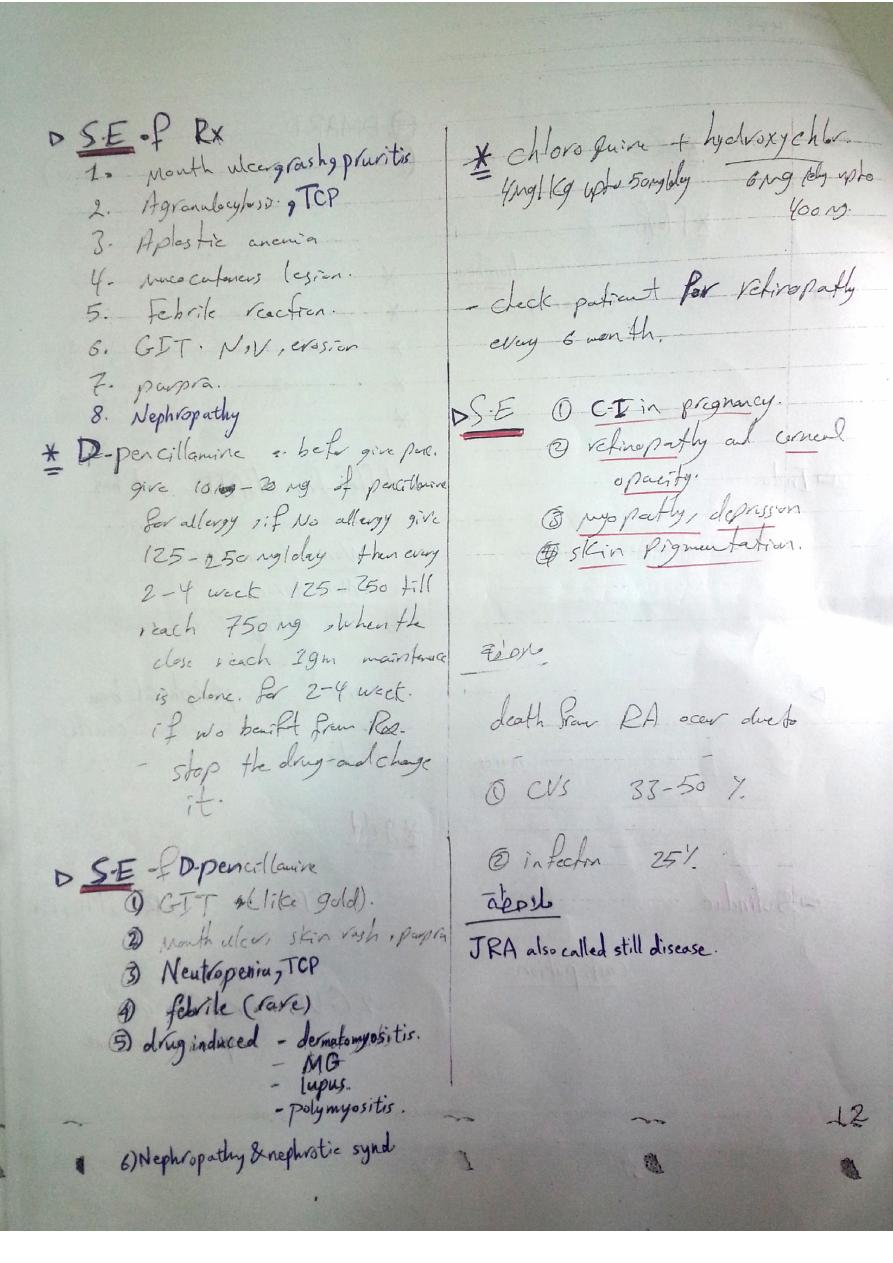 S.E of Rx
1. Mouth ulcer, rash, pruritis
2. Agranulocytosis, TCP
3. Aplastic anemia
4. mucocutaneus lesion.
5. Febrile reaction.
6. GIT. N,V, erosion
7. purpra.
8. Nephropathy
* D-pencillamine : befor give
give 10 - 20 mg of pencillamine
for allergy, if No allergy give
125-250 mg/day then every
2-4 week 125-250 till
reach 750 mg, when the
dose reach 1gm maintenance
is done. for 2-4 week.
if no benift from
- stop the drug and change
it.
S.E of D-pencillamine
① GIT (like gold).
② Mouth ulcer, skin rash, purpra
③ Neutropenia, TCP
④ febrile (rare)
⑤ drug induced - dermatomyositis.
- MG
- lupus.
- polymyositis.
6) Nephropathy & nephrotic synd
* chloroquine + hydroxychlor.
4mg/kg upto 50mg/day 6mg/kg upto
400 mg.
- check patient for retinopathy
every 6 month.
S.E ① C-I in pregnancy.
② retinopathy and corneal
opacity.
③ myopathy, depression
④ skin pigmentation.
death from RA occur due to
① CVS 33-50 %
② infection 25%
ملاحظة
JRA also called still disease.
12